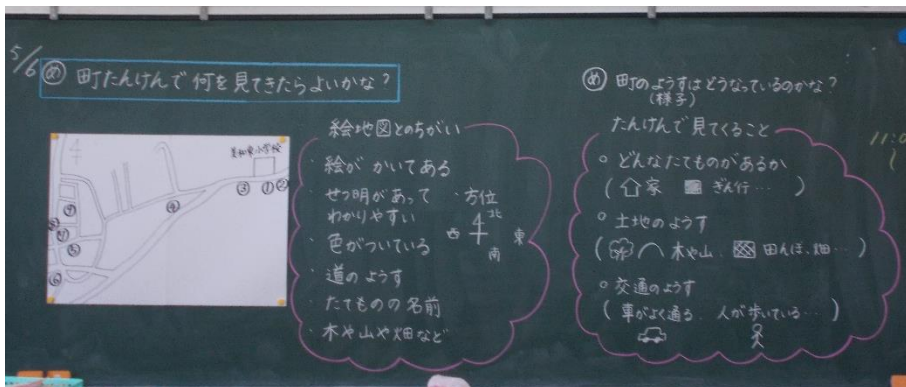 5/6
め 町たんけんで何を見てきたらよいかな？
③ ① ②
④
⑤
⑥
絵地図とのちがい
・絵がかいてある
・せつ明があって
わかりやすい
・色がついている
・道のようす
・たてものの名前
・木や山や畑など
・方位
北
西 東
南
め 町のようすはどうなっているのかな？
(様子)
たんけんで見てくること
○ どんなたてものがあるか
( 家 ぎん行… )
○ 土地のようす
( 木や山、 田んぼ、畑… )
○ 交通のようす
( 車がよく通る、人が歩いている… )